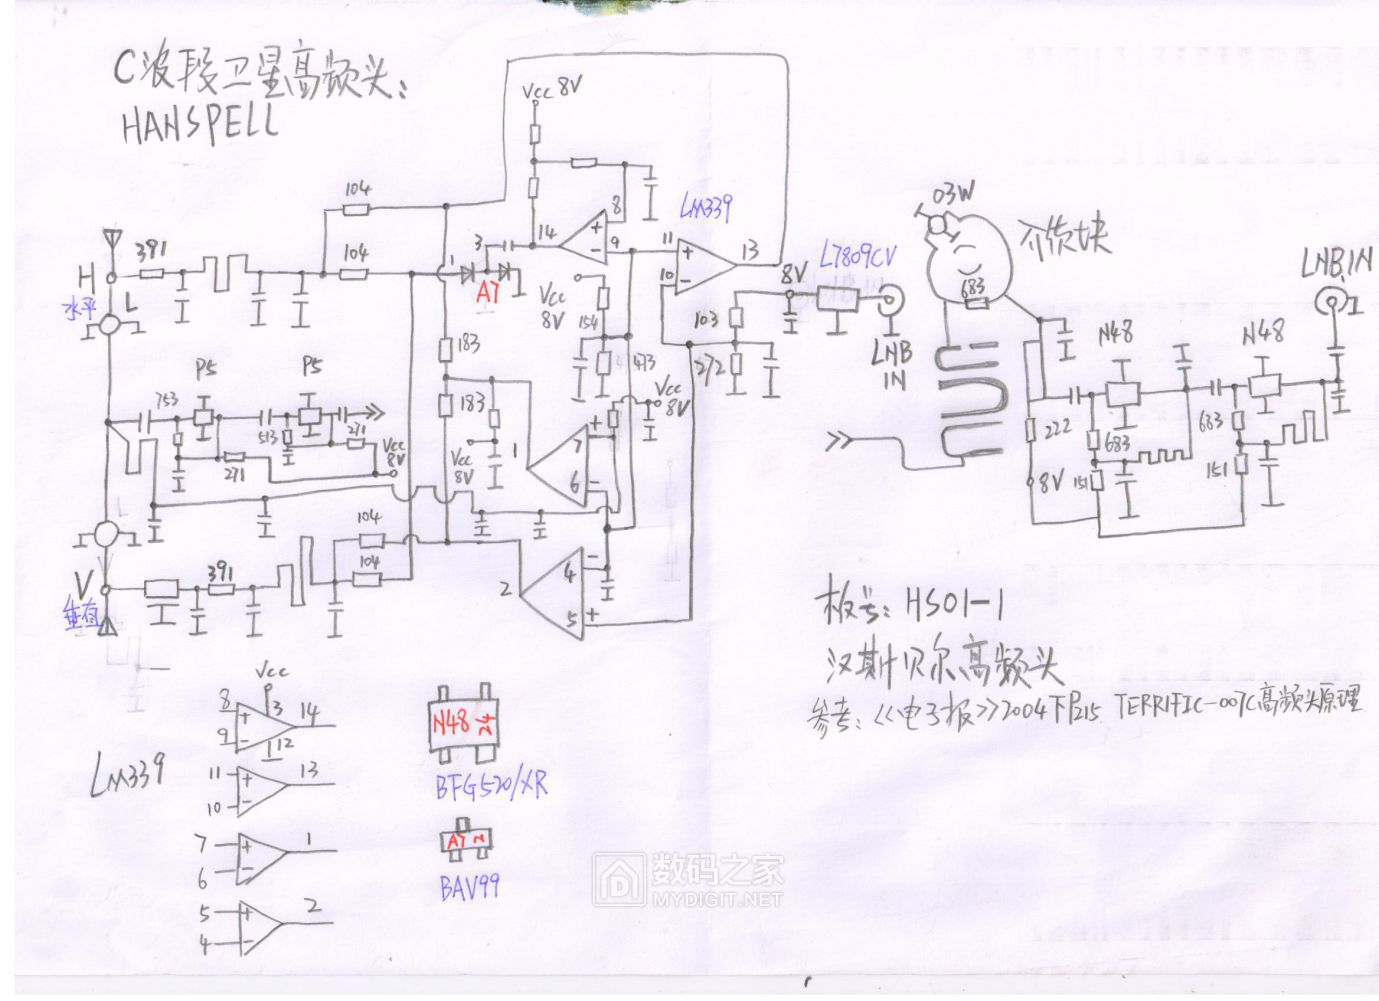 C波段卫星高频头:
HANSPELL
Vcc 8V
104
104
391
H
水平
L
1
3
A7
14
8
9
LM339
11
10
13
Vcc
8V
154
473
183
183
103
272
8V
L7809CV
LNB
IN
03W
介质块
683
LNB IN
N48
N48
222
683
683
8V
151
151
P5
P5
753
513
271
271
Vcc
8V
Vcc
8V
Vcc
8V
1
7
6
104
104
391
V
垂直
2
4
5
板号: HS01-1
汉斯贝尔高频头
参考:《电子报》2004下P215 TERRIFIC-007C高频头原理
LM339
Vcc
8
3
14
9
12
11
13
10
7
1
6
5
2
4
N48 24
BFG520/XR
A7 2
BAV99
数码之家
MYDIGIT.NET